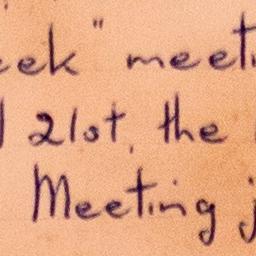 eek" meeti
21st, the
Meeting